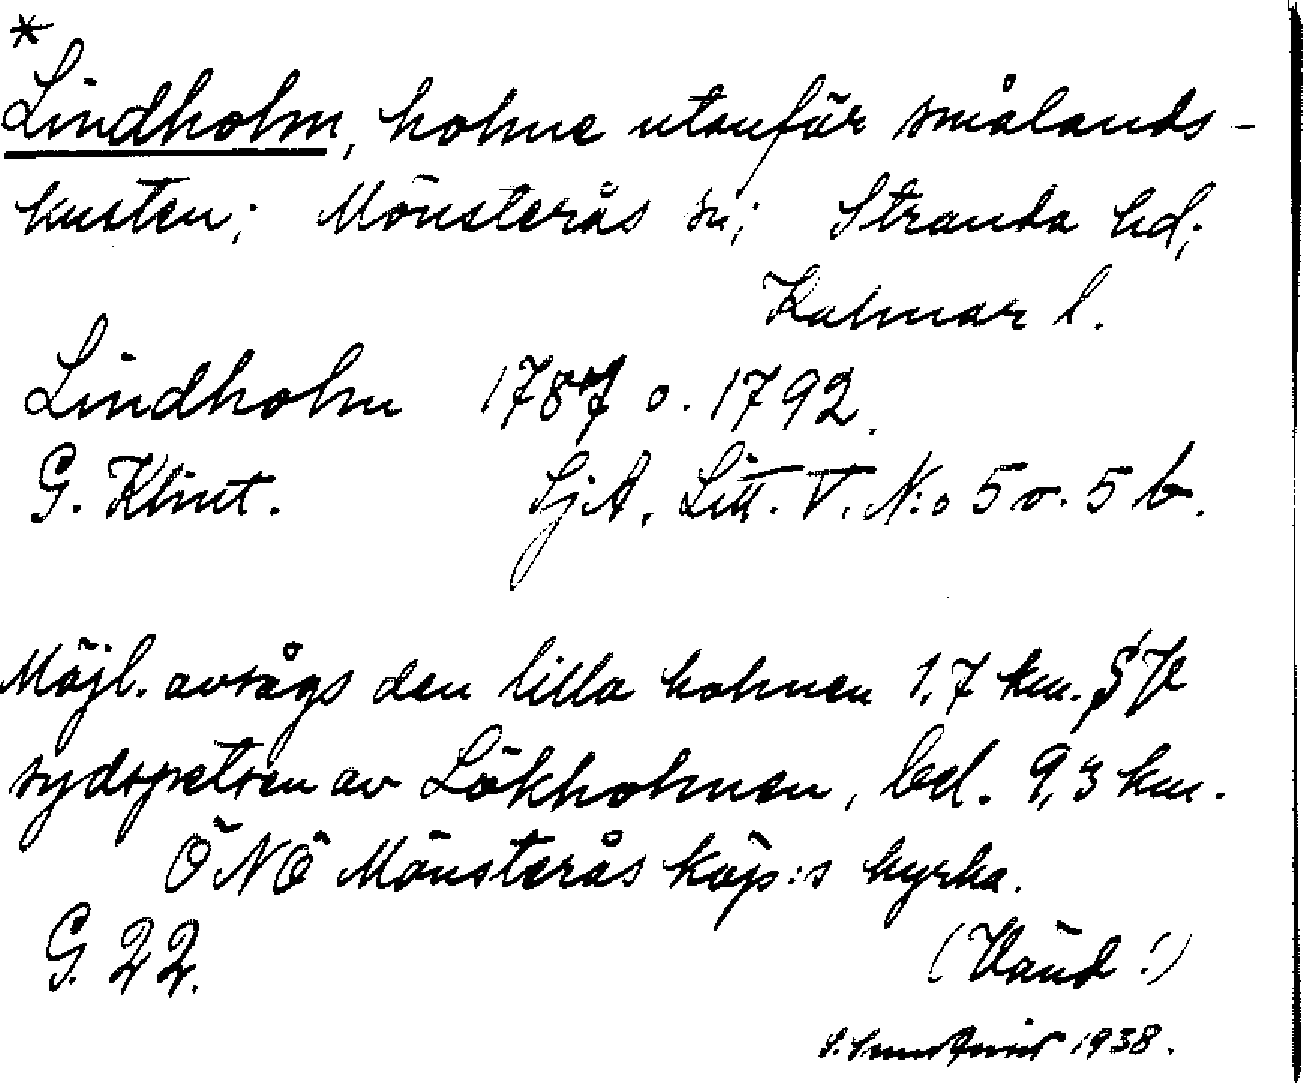 *
Lindholm, holme utanför smålands-
kusten; Mönsterås sn; Stranda hd;
Kalmar l.
Lindholm 1787 o. 1792.
G. Klint. SjA. Litt. V. N:o 5 o. 5 b.
Möjl. avsågs den lilla holmen 1,7 km. SV
sydspetsen av Lökholmen, bel. 9,3 km.
ÖNÖ Mönsterås köp:s kyrka.
G. 22. (Vänd!)
1938.